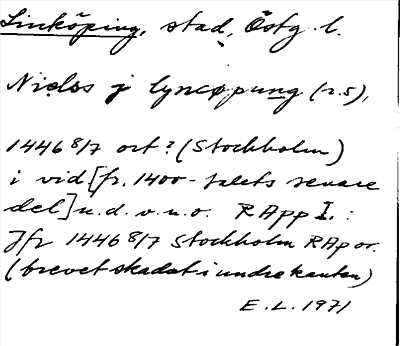 Linköping, stad, Östg. l.
Nielss j lyncøpung (r.5),
1446 8/7 ort? (Stockholm)
i vid [fr. 1400-talets senare
del] u.d. v.u.o. RApp I. :
Jfr 1446 8/7 Stockholm RAp or.
(brevet skadat i undre kanten)
E.L. 1971